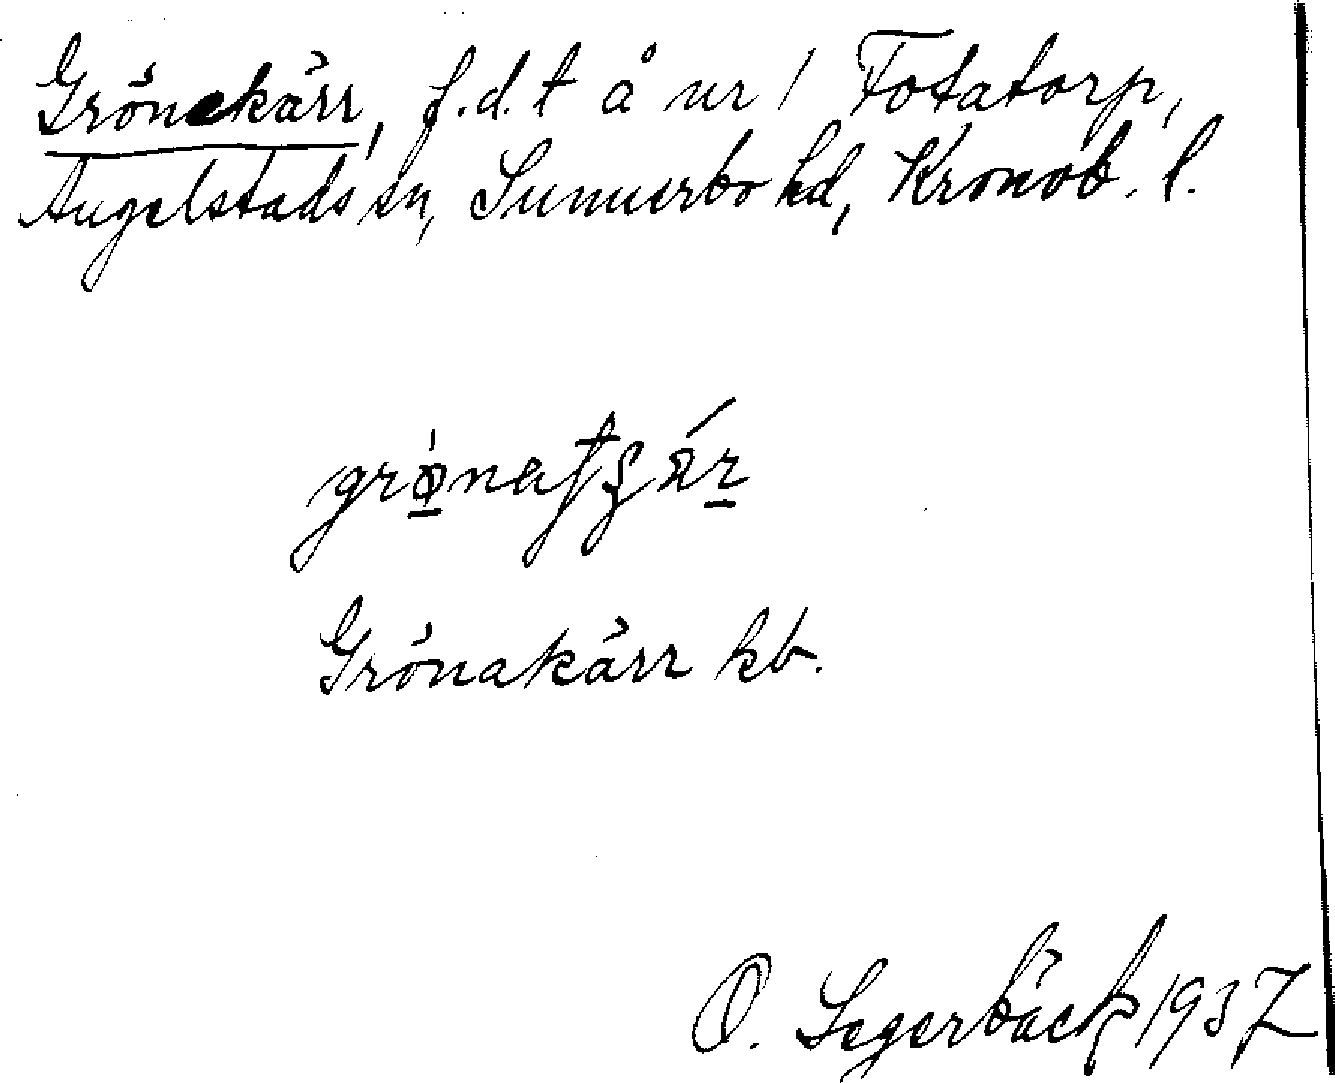 Grönakärr, f.d. t å nr 1 Fotatorp,
Angelstads sn, Sunnerbo hd, Kronob. l.
Grönakärr kb.
O. Segerbäck 1937